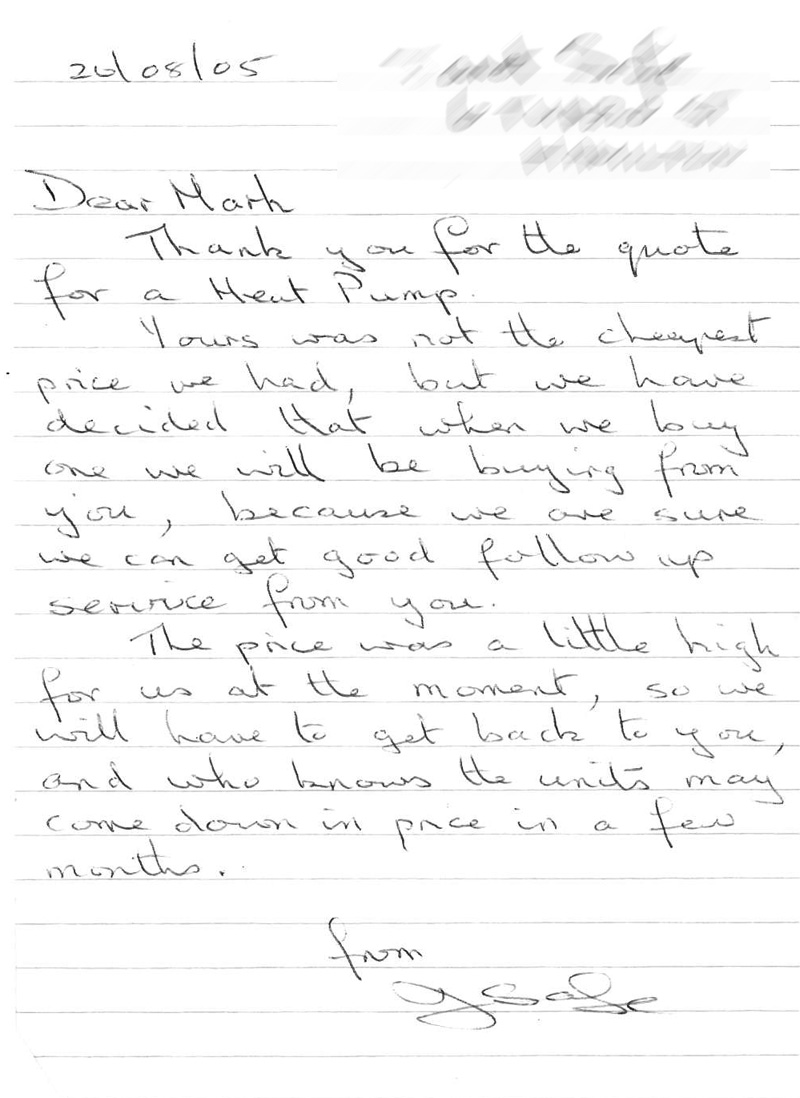 20/08/05
Dear Mark
Thank you for the quote
for a Heat Pump.
Yours was not the cheapest
price we had, but we have
decided that when we buy
one we will be buying from
you, because we are sure
we can get good follow up
service from you.
The price was a little high
for us at the moment, so we
will have to get back to you,
and who knows the units may
come down in price in a few
months.
from